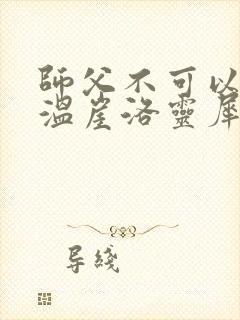 師父不可以
溫崖洛靈犀
导綫